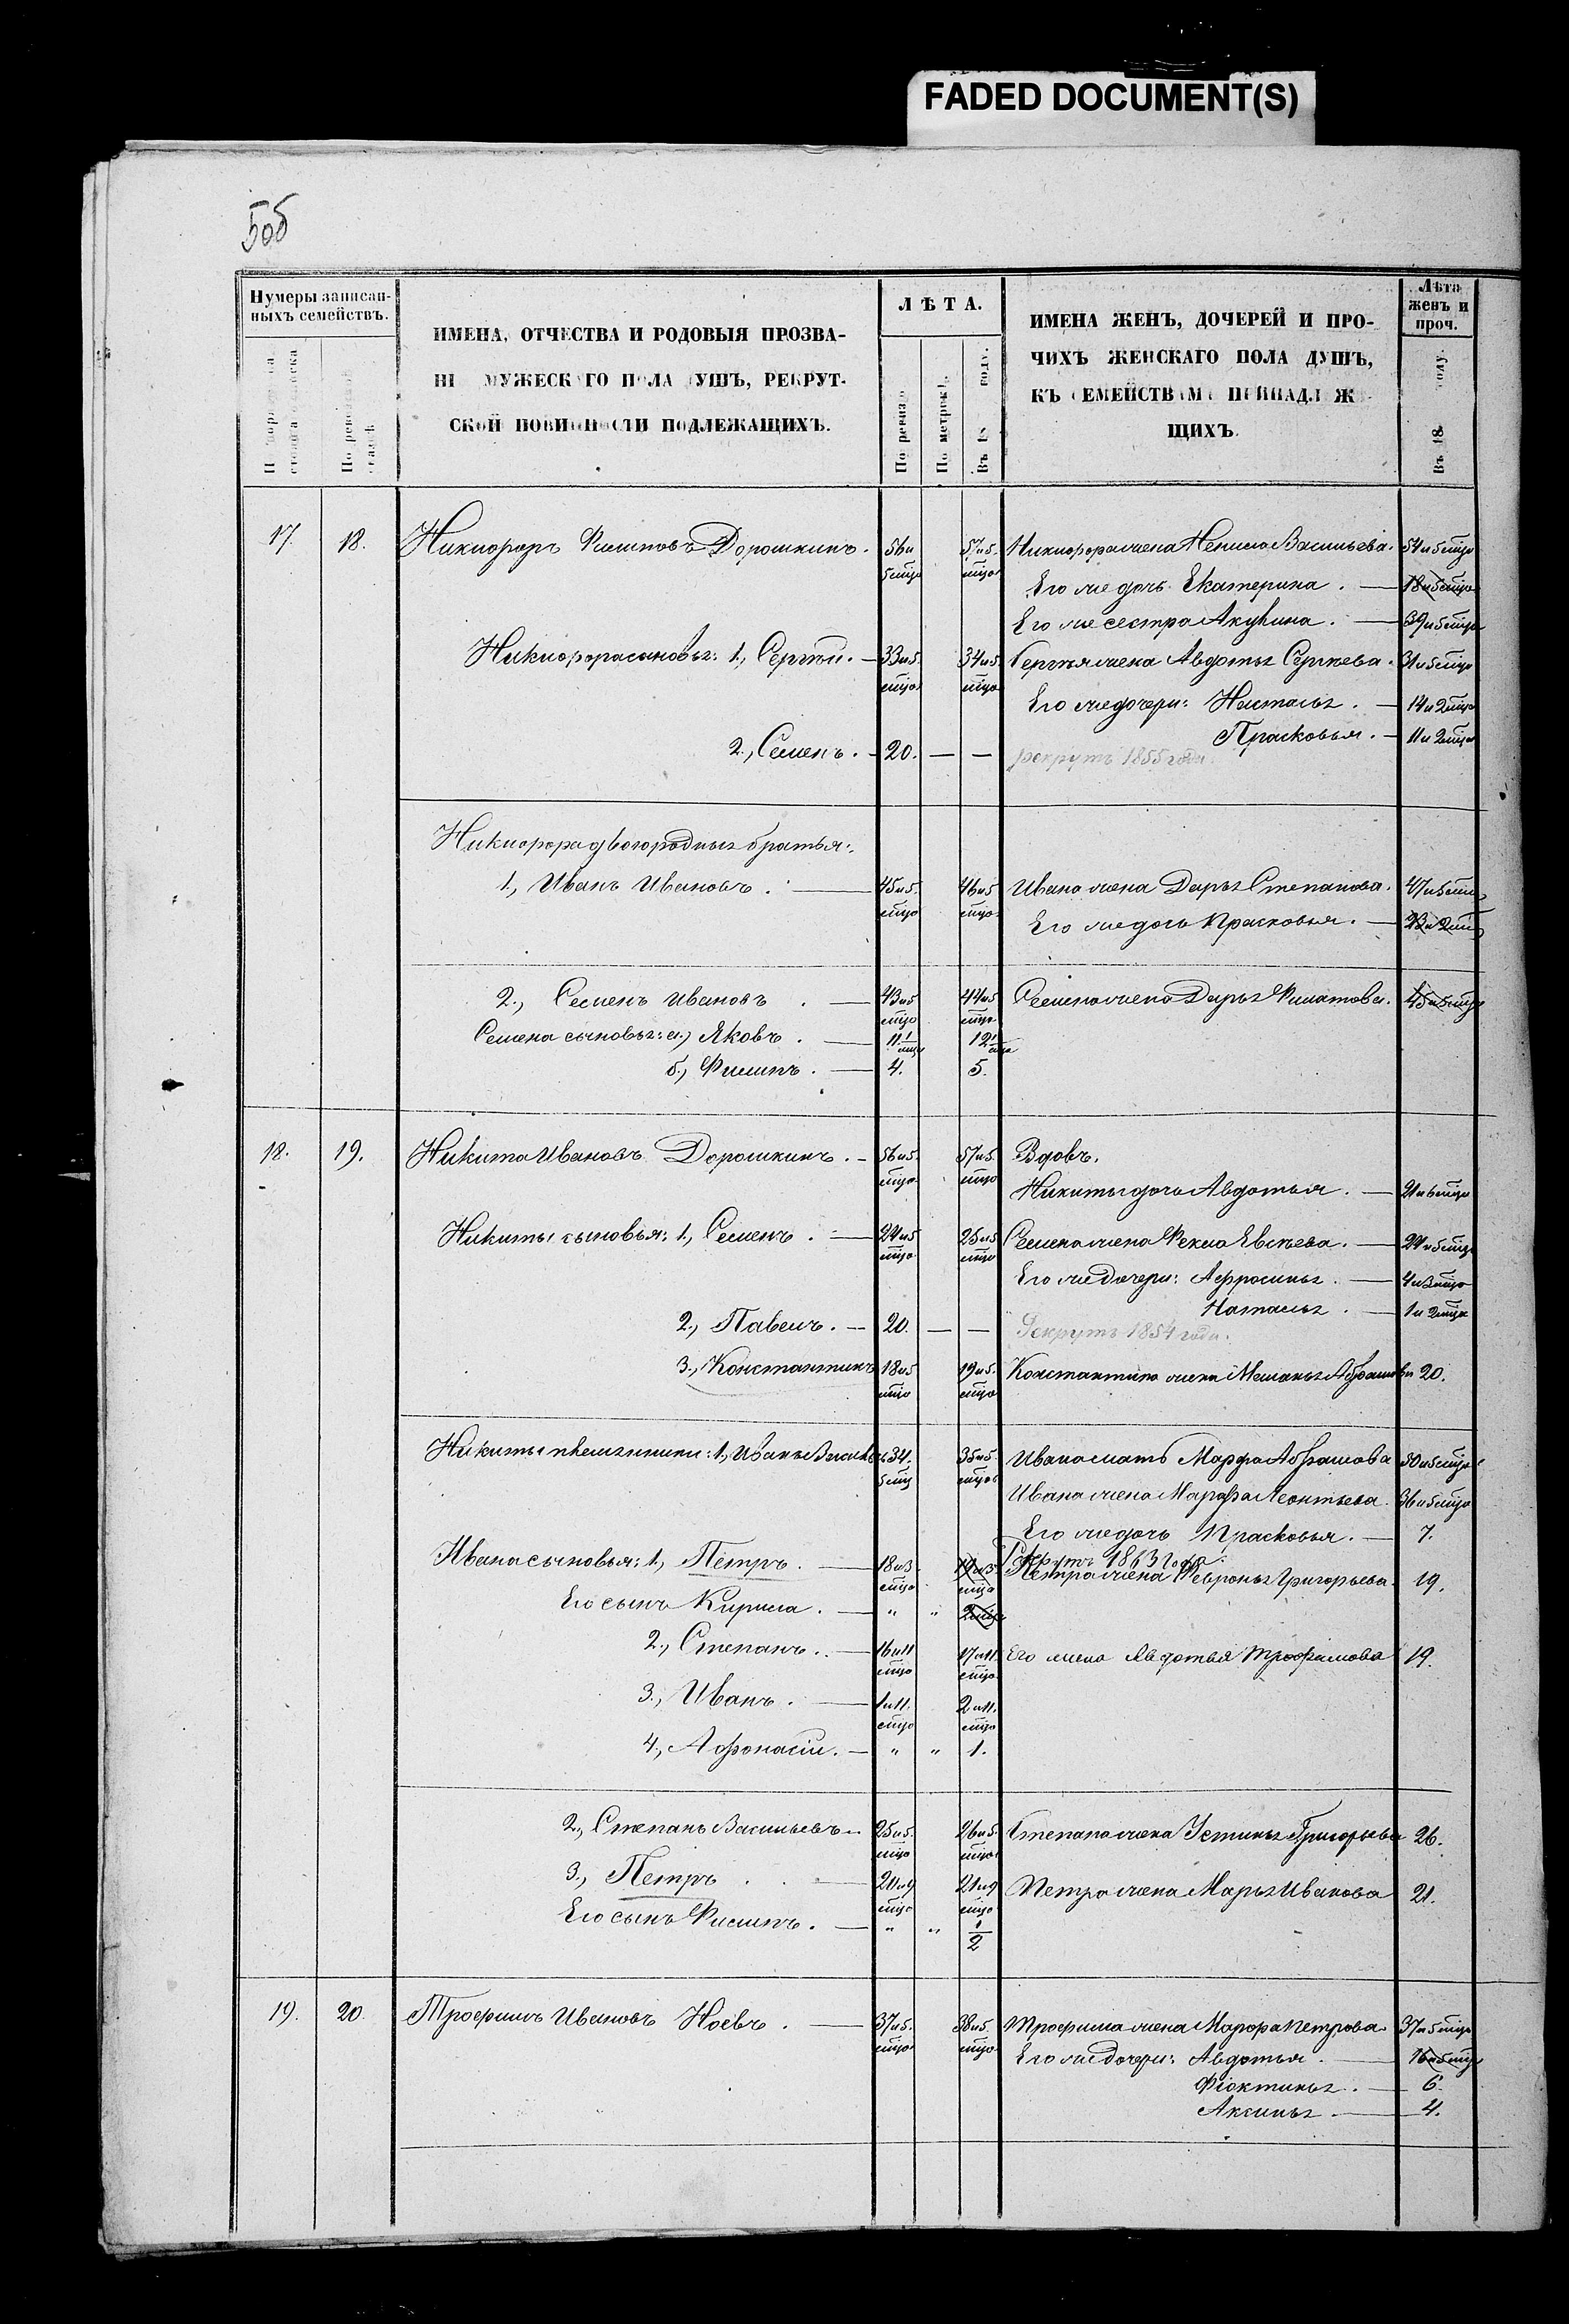 FADED DOCUMENT(S)
5об
Нумеры записан-
ныхъ семействъ.
По ревизской
ИМЕНА, ОТЧЕСТВА И РОДОВЫЯ ПРОЗВА-
НІЯ МУЖЕСКАГО ПОЛА ДУШЪ, РЕКРУТ-
СКОЙ ПОВИННОСТИ ПОДЛЕЖАЩИХЪ.
ЛѢТА.
По ревизіи
По метрикѣ.
Въ 18 году.
ИМЕНА ЖЕНЪ, ДОЧЕРЕЙ И ПРО-
ЧИХЪ ЖЕНСКАГО ПОЛА ДУШЪ,
КЪ СЕМЕЙСТВАМЪ ПРИНАДЛЕЖА
ЩИХЪ.
Лѣта
женъ и
проч.
Въ 18 году.
17. 18. Никифоръ Филиповъ Дорошкинъ. 56 и 5 мцо 57 и 5. мцо Никифора жена Васильева. 54 и 5 мцо
Его же дочь Екатерина. 18 и 5 мцо
Его же сестра Акулина. 39 и 5 мцо
Никифора сыновья: 1., Сергѣй. 33 и 5. мцо 34 и 5. мцо Сергѣя жена Авдотья Сергѣева. 31 и 5 мцо
Его же дочери: Настасья. 14 и 2 мцо
Прасковья. 11 и 2 мцо
2., Семенъ. 20. — — рекрутъ 1855 года.
Никифора двоюродныя братья:
1., Иванъ Ивановъ. 45 и 5. мцо 46 и 5 мцо Ивана жена Дарья Степанова. 47 и 5 мцо
Его же дочь Прасковья. 23 и 2 мцо
2., Семенъ Ивановъ. 43 и 5 мцо 44 и 5 мцо Семена жена Дарья Филатова. 45 и 5 мцо
Семена сыновья: а.) Яковъ. 11 1/мцо 12 1/мцо
б.) Филипъ. 4. 5.
18. 19. Никита Ивановъ Дорошкинъ. 56 и 5. мцо 57 и 5. мцо Вдовъ.
Никиты дочь Авдотья. 21 и 6 мцо
Никиты сыновья: 1., Семенъ. 24 и 5 мцо 25 и 5 мцо Семена жена Фекла Евсѣева. 24 и 5 мцо
Его же дочери: Афросинья. 4 и 3 мцо
Наталья. 1 и 2 мцо
2., Павелъ. 20. — — Рекрутъ 1854 года.
3., Константинъ 18 и 5 мцо 19 и 5. мцо Константина жена Меланья Абрамова 20.
Никиты племянники: 1., Иванъ Васильевъ 34. 5 мцо 35 и 5. мцо Ивана мать Марфа Абрамова 50 и 5 мцо
Ивана жена Марфа Леонтьева. 36 и 5 мцо
Его же дочь Прасковья. 7.
Рекрутъ 1863 года.
Ивана сыновья: 1., Петръ. 18 и 3 мцо 19 и 3 мцо Петра жена Февронья Григорьева. 19.
Его сынъ Кирила. " " 2 мцо
2., Степанъ. 16 и 11 мцо 17 и 11. мцо Его жена Авдотья Трофимова 19.
3., Иванъ. 1 и 11. мцо 2 и 11. мцо
4., Афонасій. " " 1.
2., Степанъ Васильевъ 25 и 5. мцо 26 и 5. мцо Степана жена Устинья Григорьева 26.
3., Петръ 20 и 9 мцо 21 и 9 мцо Петра жена Марья Иванова 21.
Его сынъ Филипъ. " " 1/2
19. 20. Трофимъ Ивановъ Ноевъ. 37 и 5. мцо 38 и 5. мцо Трофима жена Марфа Петрова. 37 и 5 мцо
Его же дочери: Авдотья. 16 и 5 мцо
Фіоктинья. 6.
Аксинья. 4.